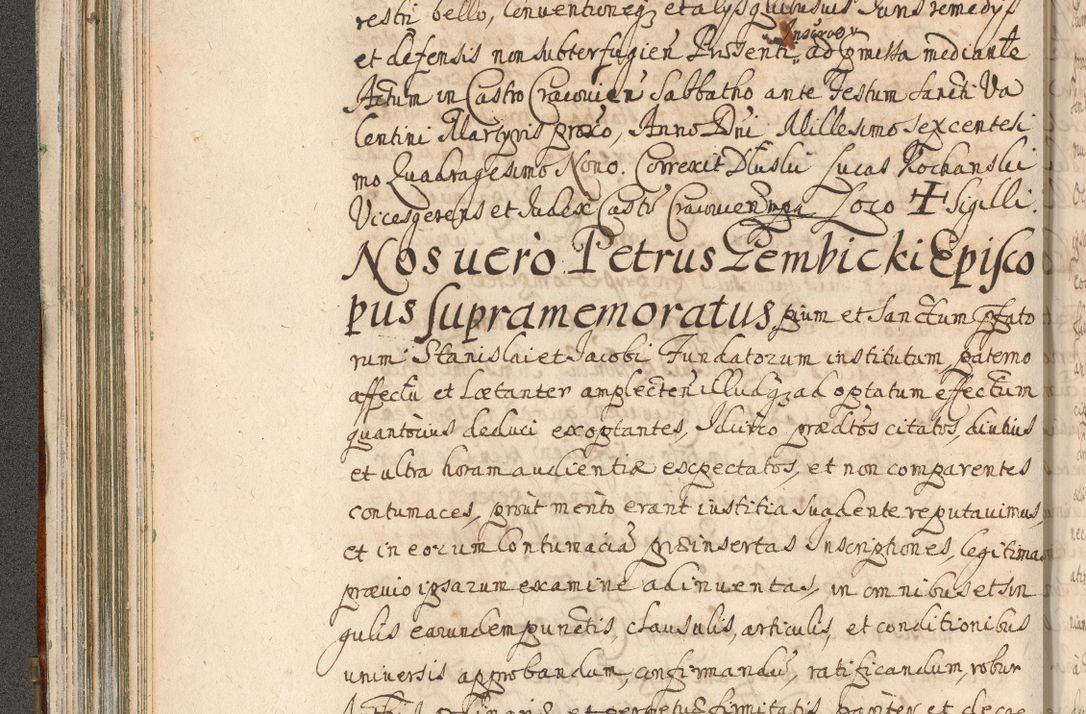 restri bello, Conventioneq; et alijs quibusvis Juris remedijs
Inscrõõr
et defensis non subterfugien Präsenti, ad pmissa mediante
Actum in Castro Cracovien Sabbatho ante Festum Sancti Va
lentini Martyris proxo, Anno Dni Millesimo sexcentesi
mo Quadragesimo Nono. Correxit Dluski Lucas Kochanski
Vicesgerens et Judex Castr Cracovien mpa Loco ✝ Sigilli.
Nos uerò Petrus Gembicki Episco
pus supramemoratus, pium et sanctum pfato
rum Stanislai et Jacobi Fundatorum institutum, paterno
affectu et Lætanter amplecten illudq; ad optatum effectum
quantocius deduci exoptantes, Idcirco prædctos citatos, diutius
et ultra horam audientiæ expectatos, et non comparentes
contumaces, prout mento erant iustitia suadente reputavimus,
et in eorum Contumaciã præinsertas Inscriptiones, legitima
prævio ipsarum examine adinventas, in omnibus et sin
gulis earundem punctis, clausulis, articulis, et conditionibus
universis approbandum, confirmandũ, ratificandum, robur
et perpetuæ firmitatis pariter et decre